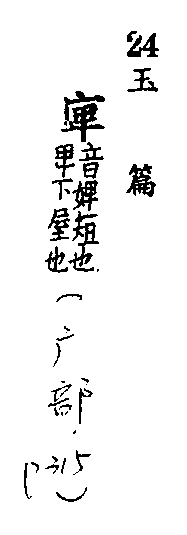 24 玉篇
庳
音婢短也.
卑下屋也
(广部.
P315)